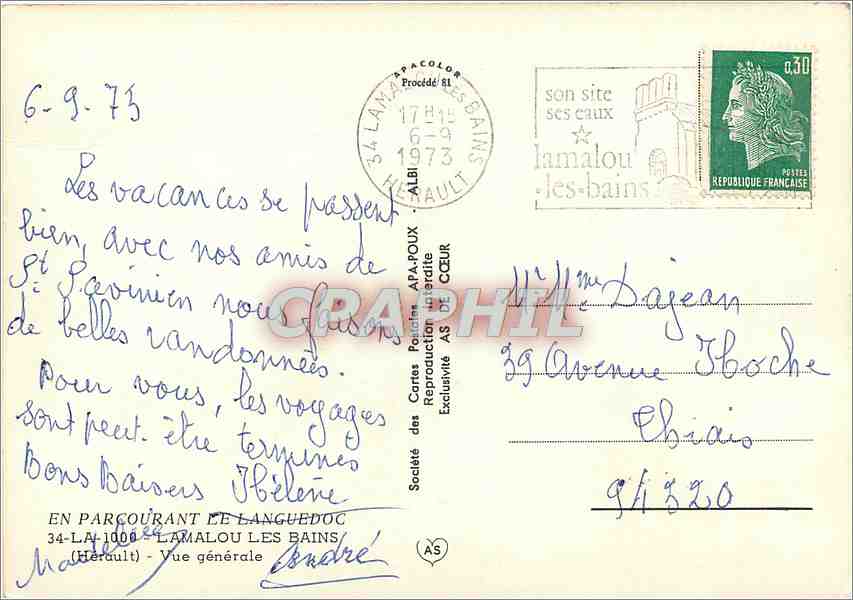 6-9-73
Les vacances se passent
bien, avec nos amis de
St Savinien nous faisons
de belles randonnées.
Pour vous, les voyages
sont peut-être terminés
Bons Baisers Hélène
Madeleine
André
EN PARCOURANT LE LANGUEDOC
34-LA-1000 - LAMALOU LES BAINS
(Hérault) - Vue générale
APACOLOR
Procédé 81
Société des Cartes Postales APA-POUX - ALBI
Reproduction Interdite
Exclusivité AS DE CŒUR
AS
34 LAMALOU LES BAINS
17H15
6-9
1973
HERAULT
son site
ses eaux
lamalou
-les-bains
0,30
POSTES
REPUBLIQUE FRANÇAISE
Mr Mme Dajean
39 Avenue Hoche
Thiais
94320
CPAPHIL